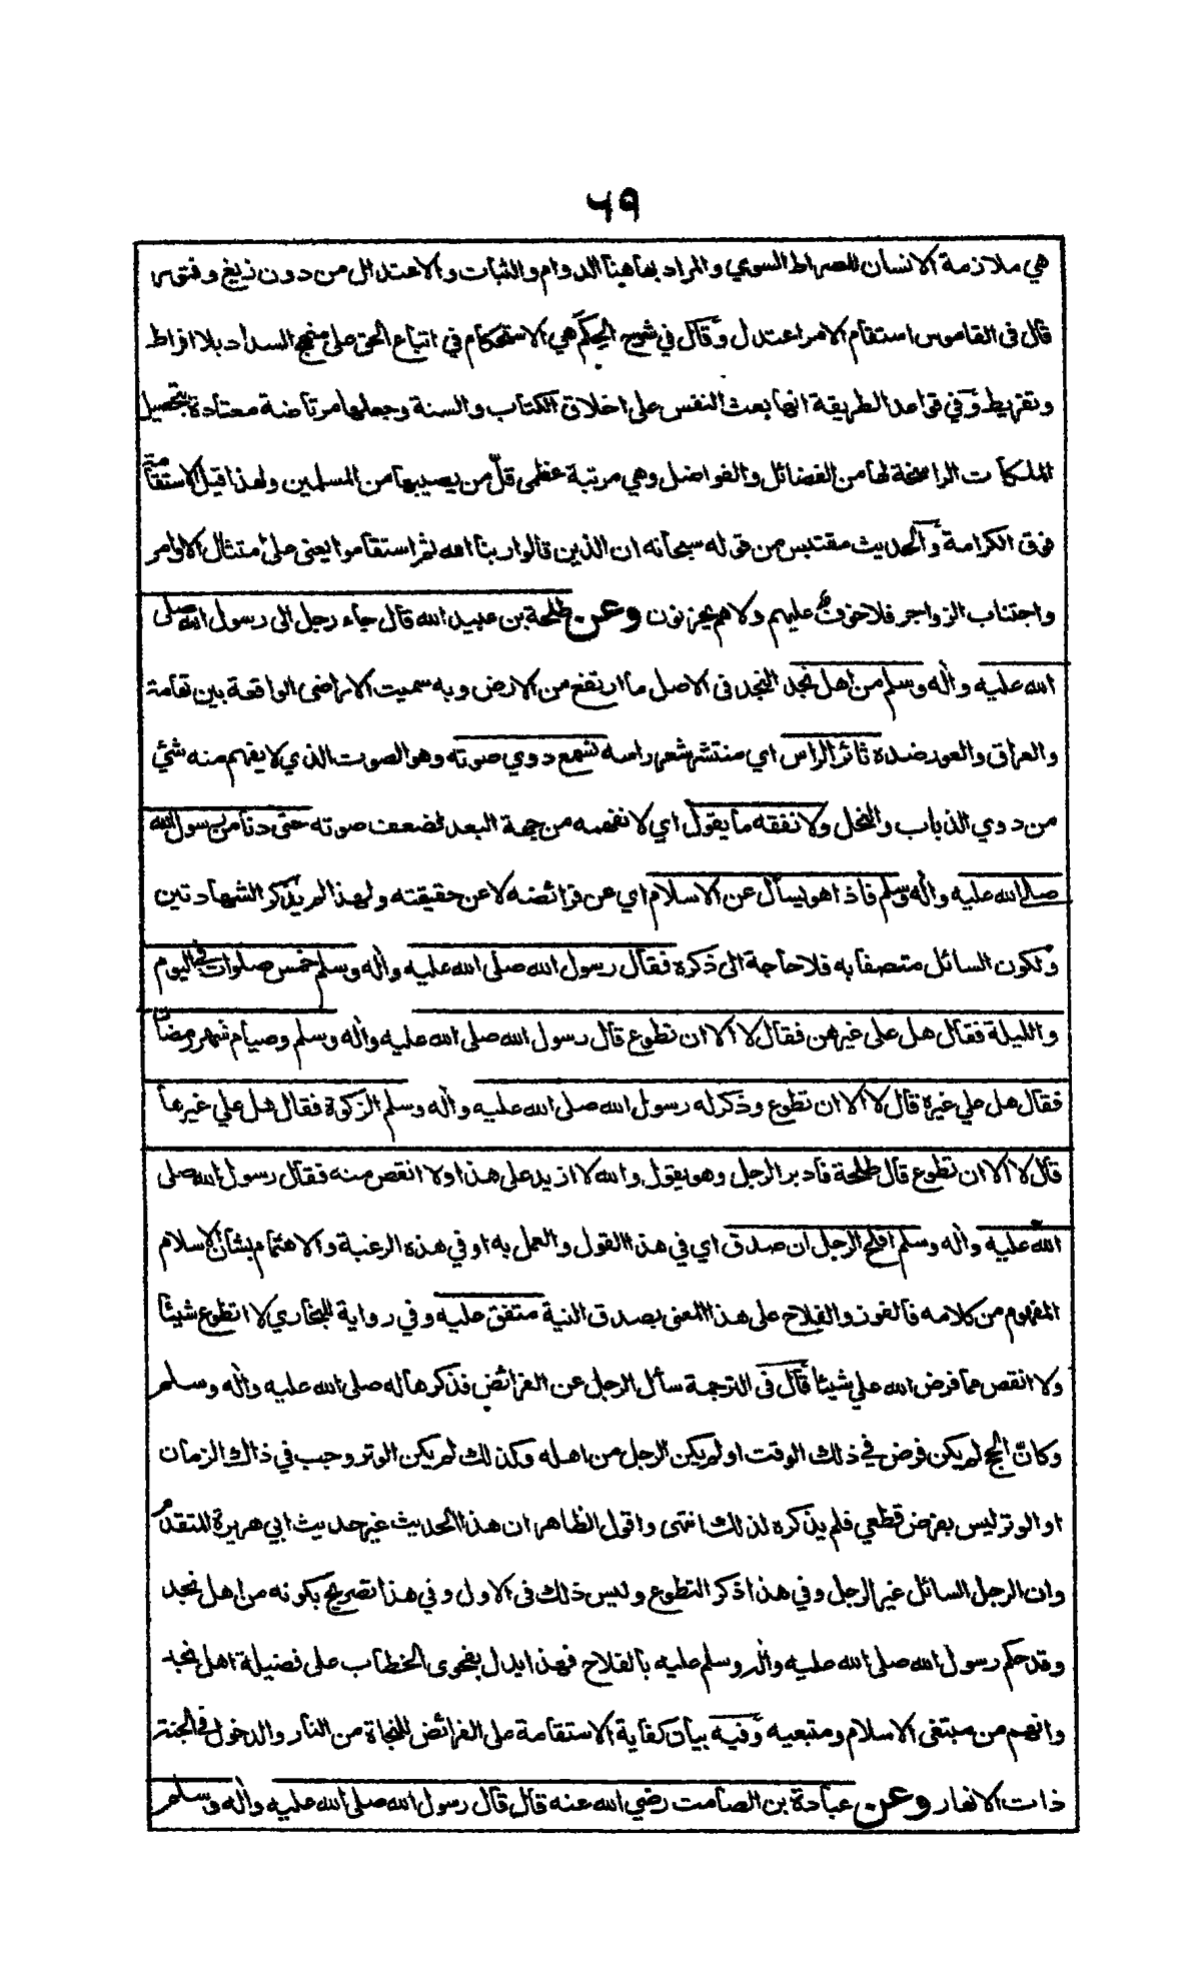 ٦٩
هي ملازمة الانسان للصراط السوي والمراد بها هنا الدوام والثبات والاعتدال من دون زيغ وفتور
قال فى القاموس استقام الامر اعتدل وقال في شرح الحكم هي الاستحكام في اتباع الحق على منهج السداد بلا افراط
وتفريط وفي قواعد الطريقة انها بعث النفس على اخلاق الكتاب والسنة وجعلها مرتاضة معتادة بتحصيل
الملكات الراسخة لها من الفضائل والفواضل وهي مرتبة عظمى قلّ من يصيبها من المسلمين ولهذا قيل الاستقامة
فوق الكرامة والحديث مقتبس من قوله سبحانه ان الذين قالوا ربنا الله ثم استقاموا يعنى على امتثال الاوامر
واجتناب الزواجر فلا خوف عليهم ولا هم يحزنون وعن طلحة بن عبيد الله قال جاء رجل الى رسول الله صلى
الله عليه واله وسلم من اهل نجد النجد فى الاصل ما ارتفع من الارض وبه سميت الاراضى الواقعة بين تهامة
والعراق والغور ضده ثائر الراس اي منتشر شعر راسه نسمع دوي صوته وهو الصوت الذي لا يفهم منه شئ
من دوي الذباب والنحل ولا نفقه ما يقول اي لا نفهمه من جهة البعد لضعف صوته حتى دنا من رسول الله
صلى الله عليه واله وسلم فاذا هو يسأل عن الاسلام اي عن فرائضه لا عن حقيقته ولهذا لم يذكر الشهادتين
ولكون السائل متصفا به فلا حاجة الى ذكره فقال رسول الله صلى الله عليه واله وسلم خمس صلوات في اليوم
والليلة فقال هل على غيرهن فقال لا الا ان تطوع قال رسول الله صلى الله عليه واله وسلم وصيام شهر رمضان
فقال هل علي غيره قال لا الا ان تطوع وذكر له رسول الله صلى الله عليه واله وسلم الزكوة فقال هل علي غيرها
قال لا الا ان تطوع قال طلحة فادبر الرجل وهو يقول والله لا ازيد على هذا ولا انقص منه فقال رسول الله صلى
الله عليه واله وسلم افلح الرجل ان صدق اي في هذا القول والعمل به او في هذه الرغبة والاهتمام بشأن الاسلام
المفهوم من كلامه فالفوز والفلاح على هذا المعنى بصدق النية متفق عليه وفي رواية للبخاري لا اتطوع شيئا
ولا انقص مما فرض الله علي شيئا قال فى الترجمة سأل الرجل عن الفرائض فذكرها له صلى الله عليه واله وسلم
وكان الحج لم يكن فرض في ذلك الوقت او لم يكن الرجل من اهله وكذلك لم يكن الوتر وجب في ذالك الزمان
او الوتر ليس بفرض قطعي فلم يذكره لذلك انتهى واقول الظاهر ان هذا الحديث غير حديث ابي هريرة المتقدم
وان الرجل السائل غير الرجل وفي هذا ذكر التطوع وليس ذلك فى الاول وفي هذا تصريح بكونه من اهل نجد
وقد حكم رسول الله صلى الله عليه واله وسلم عليه بالفلاح فهذا يدل بفحوى الخطاب على فضيلة اهل نجد
وانهم من مبتغى الاسلام ومتبعيه وفيه بيان كفاية الاستقامة على الفرائض للنجاة من النار والدخول في الجنة
ذات الانهار وعن عبادة بن الصامت رضي الله عنه قال قال رسول الله صلى الله عليه واله وسلم